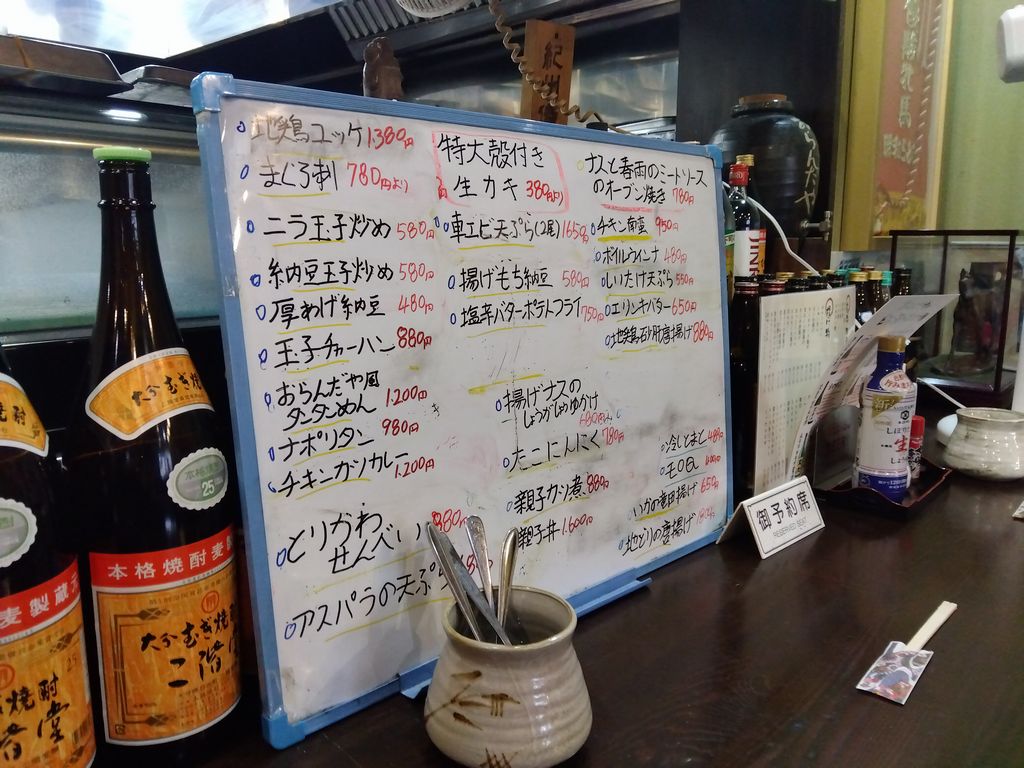 地鶏ユッケ 1380円
まぐろ刺 780円より
ニラ玉子炒め 580円
納豆玉子炒め 580円
厚あげ納豆 480円
玉子チャーハン 880円
おらんだや風
タンタンめん 1.200円
ナポリタン 980円
チキンカツカレー 1.200円
とりかわ
せんべい 880円
アスパラの天ぷら
特大殻付き
生カキ 380円より
車エビ天ぷら(2尾) 1650円
揚げもち納豆 580円
塩辛バターポテトフライ 750円
揚げナスの
しょうがじょうゆがけ
たこにんにく 780円
親子カツ煮 880円
親子丼 1.600円
ナスと春雨のミートソース
のオーブン焼き 780円
チキン南蛮 950円
ボイルウインナ 480円
しいたけ天ぷら 550円
エリンキバター 650円
地鶏砂肝唐揚げ 880円
冷しとまと 480円
モロQ
いかの竜田揚げ 650円
地どりの唐揚げ
紀州
御予約席
RESERVED SEAT
大分むぎ焼酎
本格焼酎
25
本格焼酎麦製
大分むぎ焼酎
二階堂
麦製蔵元
焼酎
階堂
生